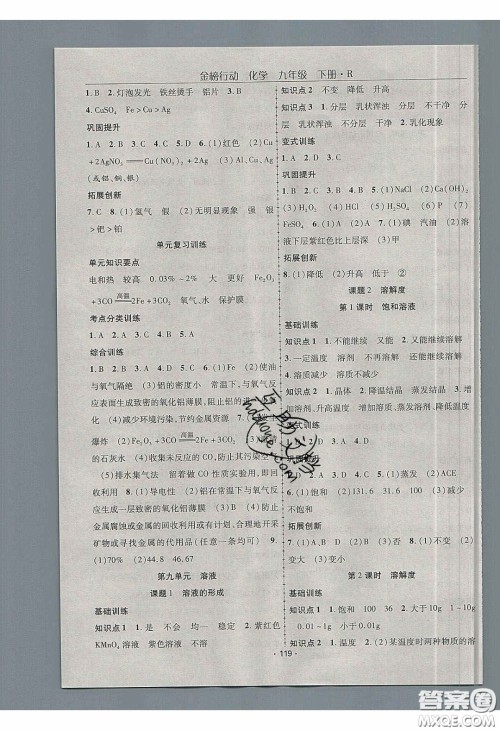 金榜行动 化学 九年级 下册·R
1. B 2. 灯泡发光 铁丝烫手 铝片 3. B
4. CuSO₄ Fe＞Cu＞Ag
巩固提升
1. A 2. B 3. D 4. C 5. D 6. (1)红色 (2)Cu
+2AgNO₃══Cu(NO₃)₂+2Ag (3)Ag (4)Fe
(或铝、铜)
拓展创新
7. C 8. (1)氢气 假 (2)无明显现象 强 >
>钯>铂
单元复习训练
单元知识要点
电和热 较高 0.03%~2% 大 更高 Fe₂O₃
+3CO══高温2Fe+3CO₂ 氧气、水 保护膜
考点分类训练
1. A 2. D 3. C 4. B 5. C 6. D
综合训练
1. A 2. B 3. C 4. D 5. B 6. (1)Fe (2)使油
与氧气隔绝 (3)铝合金 密度小 常温下,与氧气
反应表面生成致密的氧化铝薄膜,阻止铝的生锈
(4)减少环境污染,节约金属资源 7. (1)防止
爆炸 (2)Fe₂O₃+3CO══高温2Fe+3CO₂ (3)澄清
的石灰水 (4)吸收反应的CO₂,防止污染空气
(5)排水集气法 留着做CO性质实验用,即可点
燃利用 8. (1)导电性 (2)铝在常温下,与氧气反应
生成致密的氧化铝薄膜 (3)防止金属腐蚀或金
属的回收利用或有计划、合理地开采矿物或寻找
金属的代用品(任意两条) 9.
(1)70% (2)44.8 46.67
第九单元 溶液
课题1 溶液的形成
基础训练
知识点1 1. 是 不会 均一 稳定 2. 紫红色
KMnO₄ 紫色溶液 不溶
知识点2 不变 降低 升高
知识点3 1. 不 分层 乳状浑浊 不 分层 不干净
分层 乳状浑浊 分层 不干净 干净 2. 乳化现象
变式训练
1. A 2. D 3. C
巩固提升
1. B 2. B 3. C 4. D 5. B 6. (1)NaCl (2)Ca(OH)₂
(3)HCl (4)H₂SO₄ (5)C₂H₅OH (6)I₂ (7)
FeSO₄ 7. (1)丙 (2)碘 汽油 (3)A (2)溶
液下层紫红色比上层深
拓展创新
8. (1)降低 (2)升高 (3)低于 ②
课题2 溶解度
第1课时 饱和溶液
基础训练
知识点1 1. 不能继续 又能 2. 不能 能继续溶解
3. 一定温度 溶剂 不能再继续溶解
4. 减少溶剂 溶质不减少
知识点2 1. 晶体 2. 降温结晶 蒸发结晶 3. 增
加溶剂、升高温度 增加溶质、蒸发溶剂、降低温度
变式训练
1. A 2. B 3. A
巩固提升
1. B 2. C 3. D 4. B 5. (1)A (2)ACE
6. (1)饱和 (2)130 (3)等于 (4)减少 不变
拓展创新
7. (1)AB (2)B (3)否 8. B 9. (1)不变
(2)变大 (3)变小
第2课时 溶解度
知识点1 1. 饱和 100 36 2. 大于10g 1~10g
0.01~1g 小于0.01g
知识点2 1. 温度 2. (1)某温度时两种物质的溶
·119·
互助文学
huzuone.com
答案圈
MXQE.COM